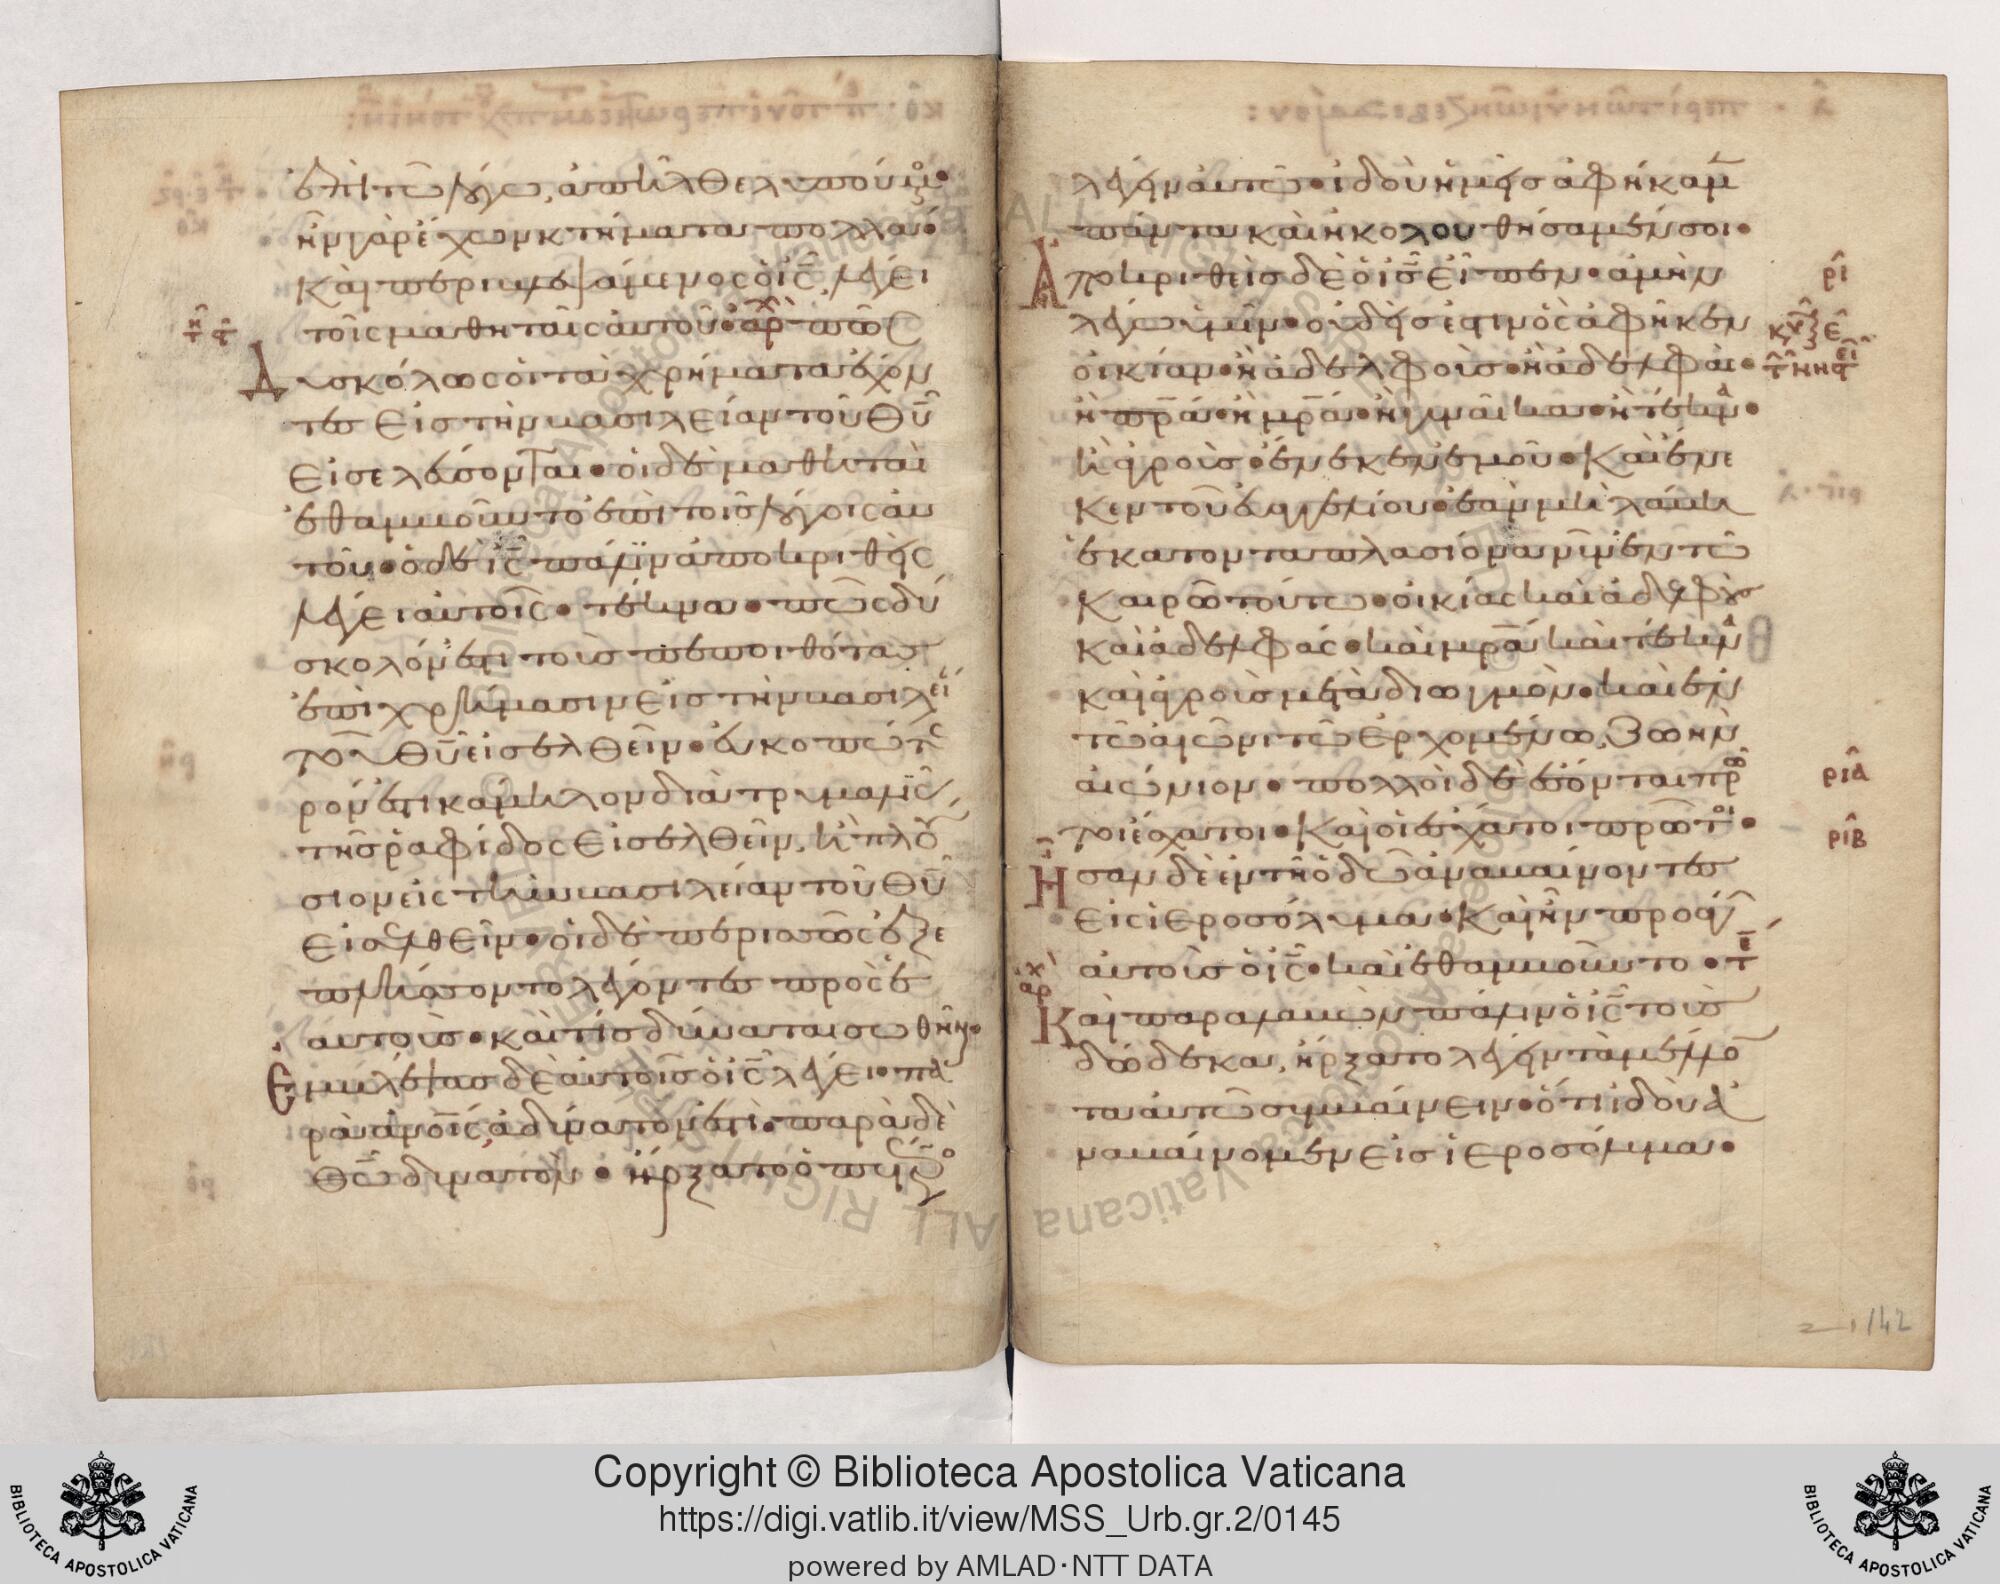 ἐπὶ τῶ λόγω, ἀπῆλθε λυπούμενος·
ἦν γὰρ ἔχων κτήματα πολλά·
Καὶ περιβλεψάμενος ὁ ις̅ λέγει
τοῖς μαθηταῖς αὐτοῦ· ἀρχ πῶς
Δυσκόλως οἱ τὰ χρήματα ἔχον
τες εἰς τὴν βασιλείαν τοῦ θυ̅
εἰσελεύσονται· οἱ δὲ μαθηταὶ
ἐθαμβοῦντο ἐπὶ τοῖς λόγοις αὐ
τοῦ· ὁ δὲ ις̅ πάλιν ἀποκριθεὶς
λέγει αὐτοῖς· τέκνα· πῶς δύ
σκολόν ἐστι τοὺς πεποιθότας
ἐπὶ χρήμασιν εἰς τὴν βασιλεί
τοῦ θυ̅ εἰσελθεῖν· εὐκοπώτε
ρόν ἐστι κάμηλον διὰ τρυμαλιᾶς
τῆς ῥαφίδος εἰσελθεῖν, ἢ πλού
σιον εἰς τὴν βασιλείαν τοῦ θυ̅
εἰσελθεῖν· οἱ δὲ περισσῶς ἐξε
πλήσσοντο λέγοντες πρὸς ἑ
αυτούς· καὶ τίς δύναται σωθῆναι·
Ἐμβλέψας δὲ αὐτοῖς ὁ ις̅ λέγει· πα
ρὰ ανοις̅, ἀδύνατόν ἐστι· παρὰ δὲ
θω̅ δυνατόν· ἤρξατο ὁ πέτρος
τ̅ ϟ̅
λέγειν αὐτῶ· ἰδοὺ ἡμεῖς ἀφήκαμεν
πάντα καὶ ἠκολουθήσαμέν σοι·
Ἀποκριθεὶς δὲ ὁ ις̅ εἶπεν· ἀμὴν
λέγω ὑμῖν· οὐδείς ἐστιν ὃς ἀφῆκεν
οἰκίαν· ἢ ἀδελφοὺς· ἢ ἀδελφὰς·
ἢ πρα̅· ἢ μρα̅· ἢ γυναῖκα· ἢ τέκνα·
ἢ ἀγροὺς· ἕνεκεν ἐμοῦ· καὶ ἕνε
κεν τοῦ εὐαγγελίου· ἐὰν μὴ λάβη
ἑκατονταπλασίονα νῦν ἐν τῶ
καιρῶ τούτω· οἰκίας καὶ ἀδελφοὺς
καὶ ἀδελφάς· καὶ μρα̅ καὶ τέκνα
καὶ ἀγροὺς μετὰ διωγμόν· καὶ ἐν
τῶ αἰῶνι τῶ ἐρχομένω, ζωὴν
αἰώνιον· πολλοὶ δὲ ἔσονται πρῶ
τοι ἔσχατοι· καὶ οἱ ἔσχατοι πρῶτοι·
Ἦσαν δὲ ἐν τῆ ὁδῶ ἀναβαίνοντες
εἰς ἱεροσόλυμα· καὶ ἦν προάγων
αὐτοὺς ὁ ις̅· καὶ ἐθαμβοῦντο· τε
ἀρχ
Καὶ παραλαβὼν πάλιν ὁ ις̅ τοὺς
δώδεκα, ἤρξατο λέγειν τὰ μέλλον
τα αὐτῶ συμβαίνειν· ὅτι ἰδοὺ ἀ
ναβαίνομεν εἰς ἱεροσόλυμα·
ρι
ρια
ριβ
142
BIBLIOTECA APOSTOLICA VATICANA
Copyright © Biblioteca Apostolica Vaticana
https://digi.vatlib.it/view/MSS_Urb.gr.2/0145
powered by AMLAD·NTT DATA
BIBLIOTECA APOSTOLICA VATICANA